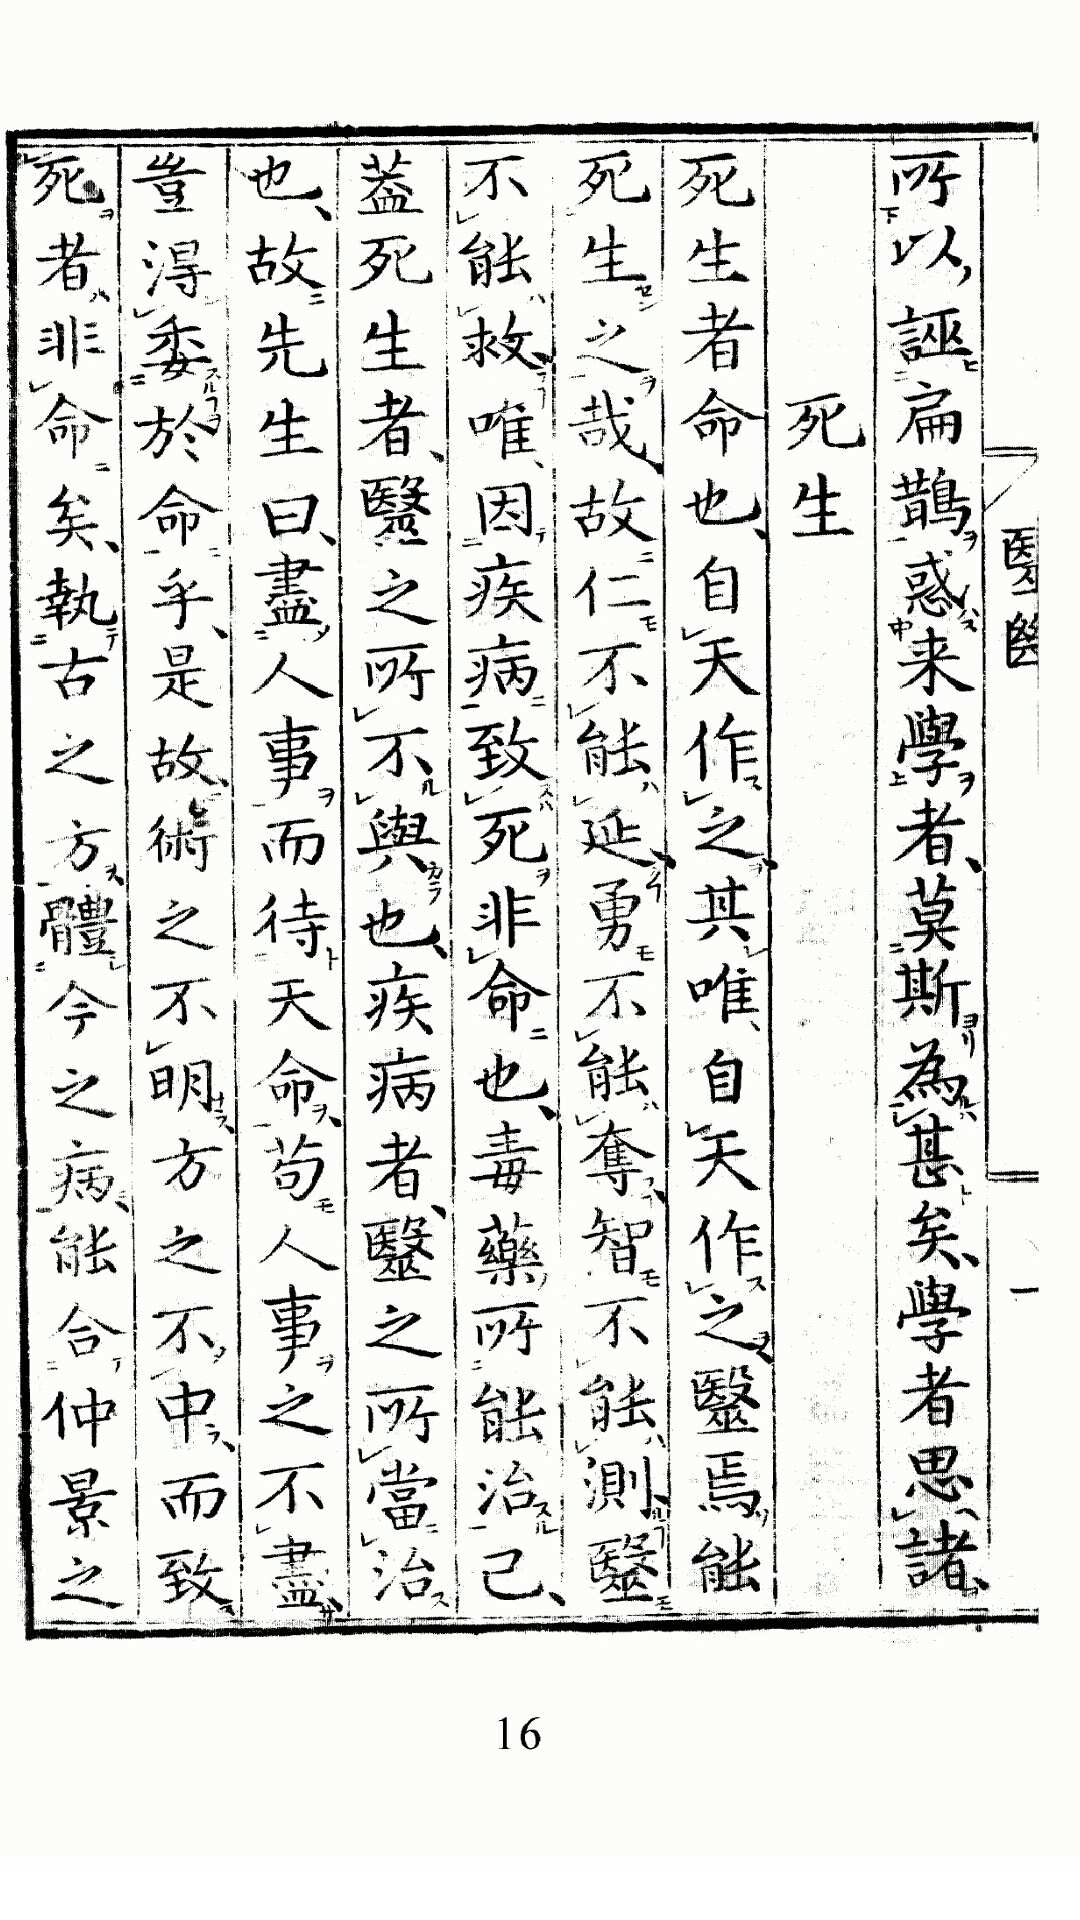 所以誣扁鵲惑来學者、莫斯為甚矣、學者思諸、
死生
死生者命也、自天作之、其唯自天作之、毉焉能
死生之哉、故仁不能延、勇不能奪、智不能測、毉
不能救、唯因疾病致死非命也、毒藥所能治已、
葢死生者、毉之所不與也、疾病者、毉之所當治
也、故先生曰、盡人事而待天命、苟人事之不盡、
豈得委於命乎、是故術之不明、方之不中、而致
死者、非命矣、執古之方、體今之病、能合仲景之
16